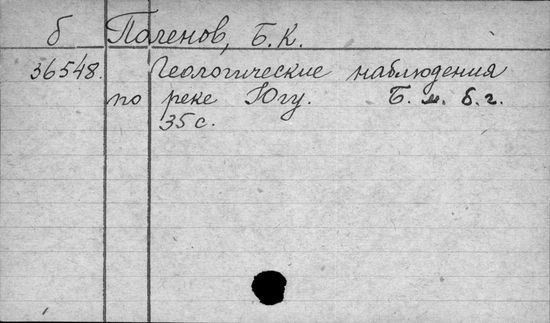 б Поленов, Б.К.
36548. Геологические наблюдения
по реке Югу. Б. м. б. г.
35 с.